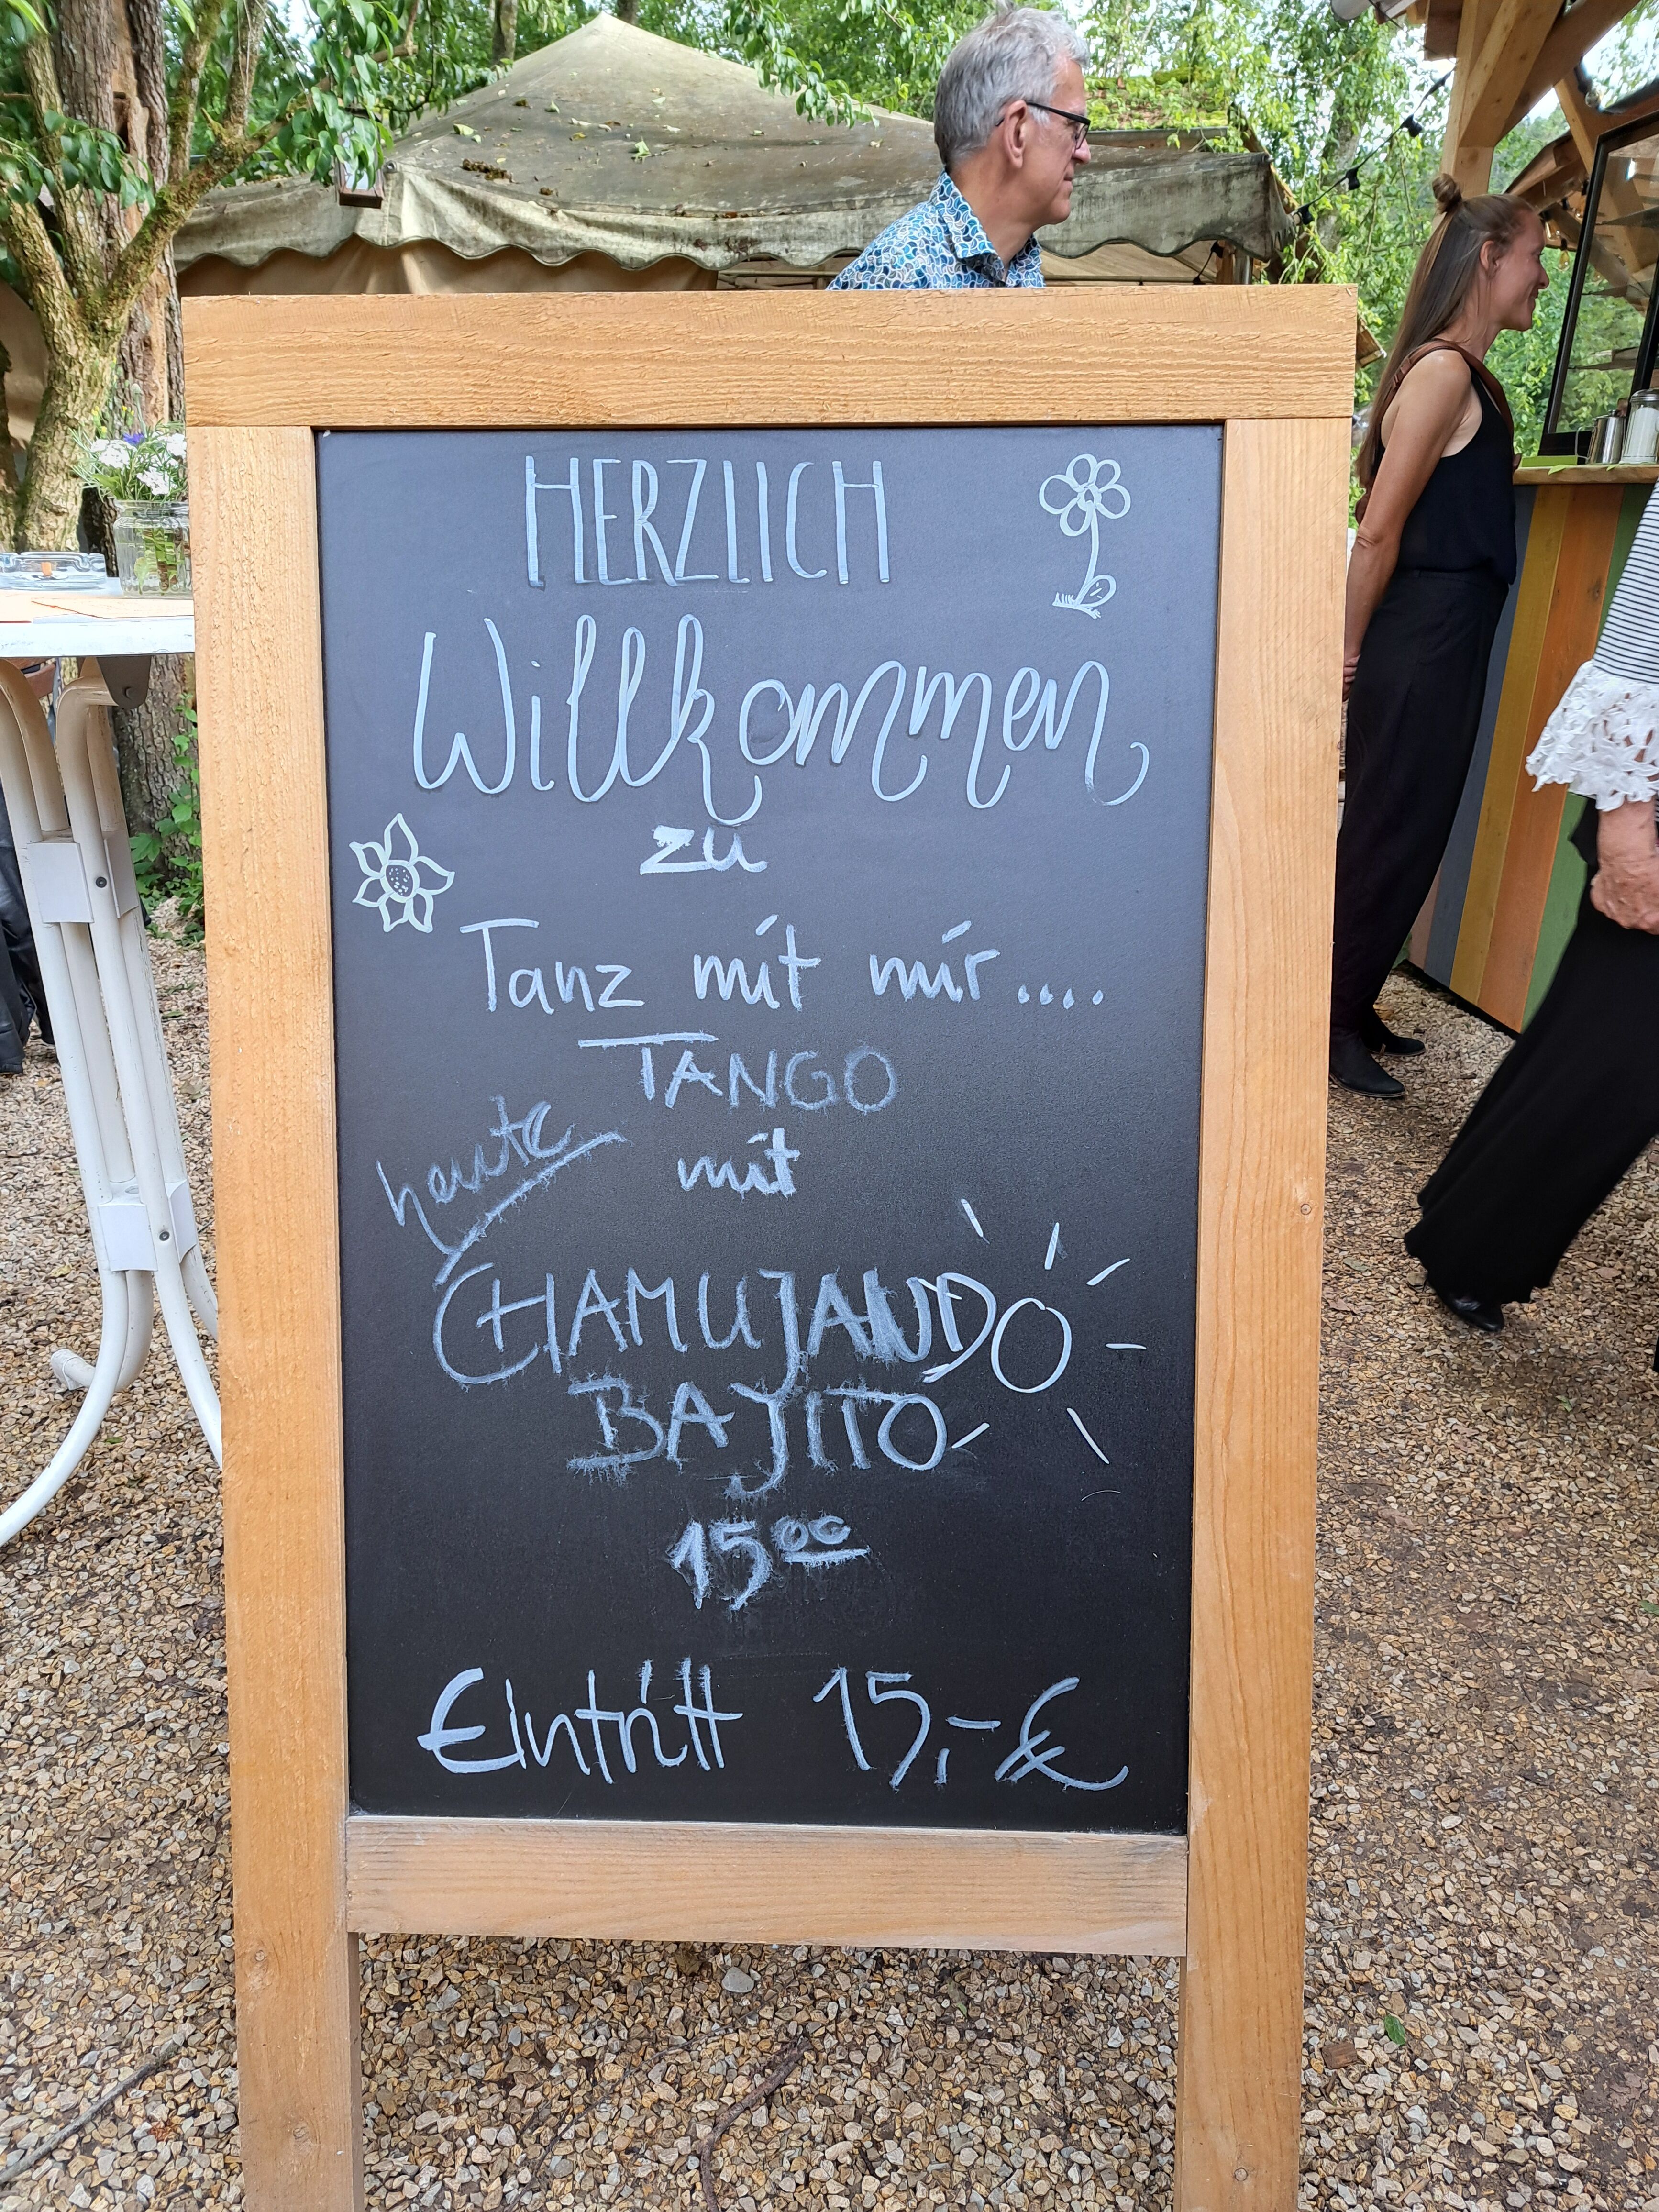 HERZLICH
Willkommen
zu
Tanz mit mir....
TANGO
heute
mit
CHAMUJANDO
BAJITO
15⁰⁰
Eintritt 15,-€